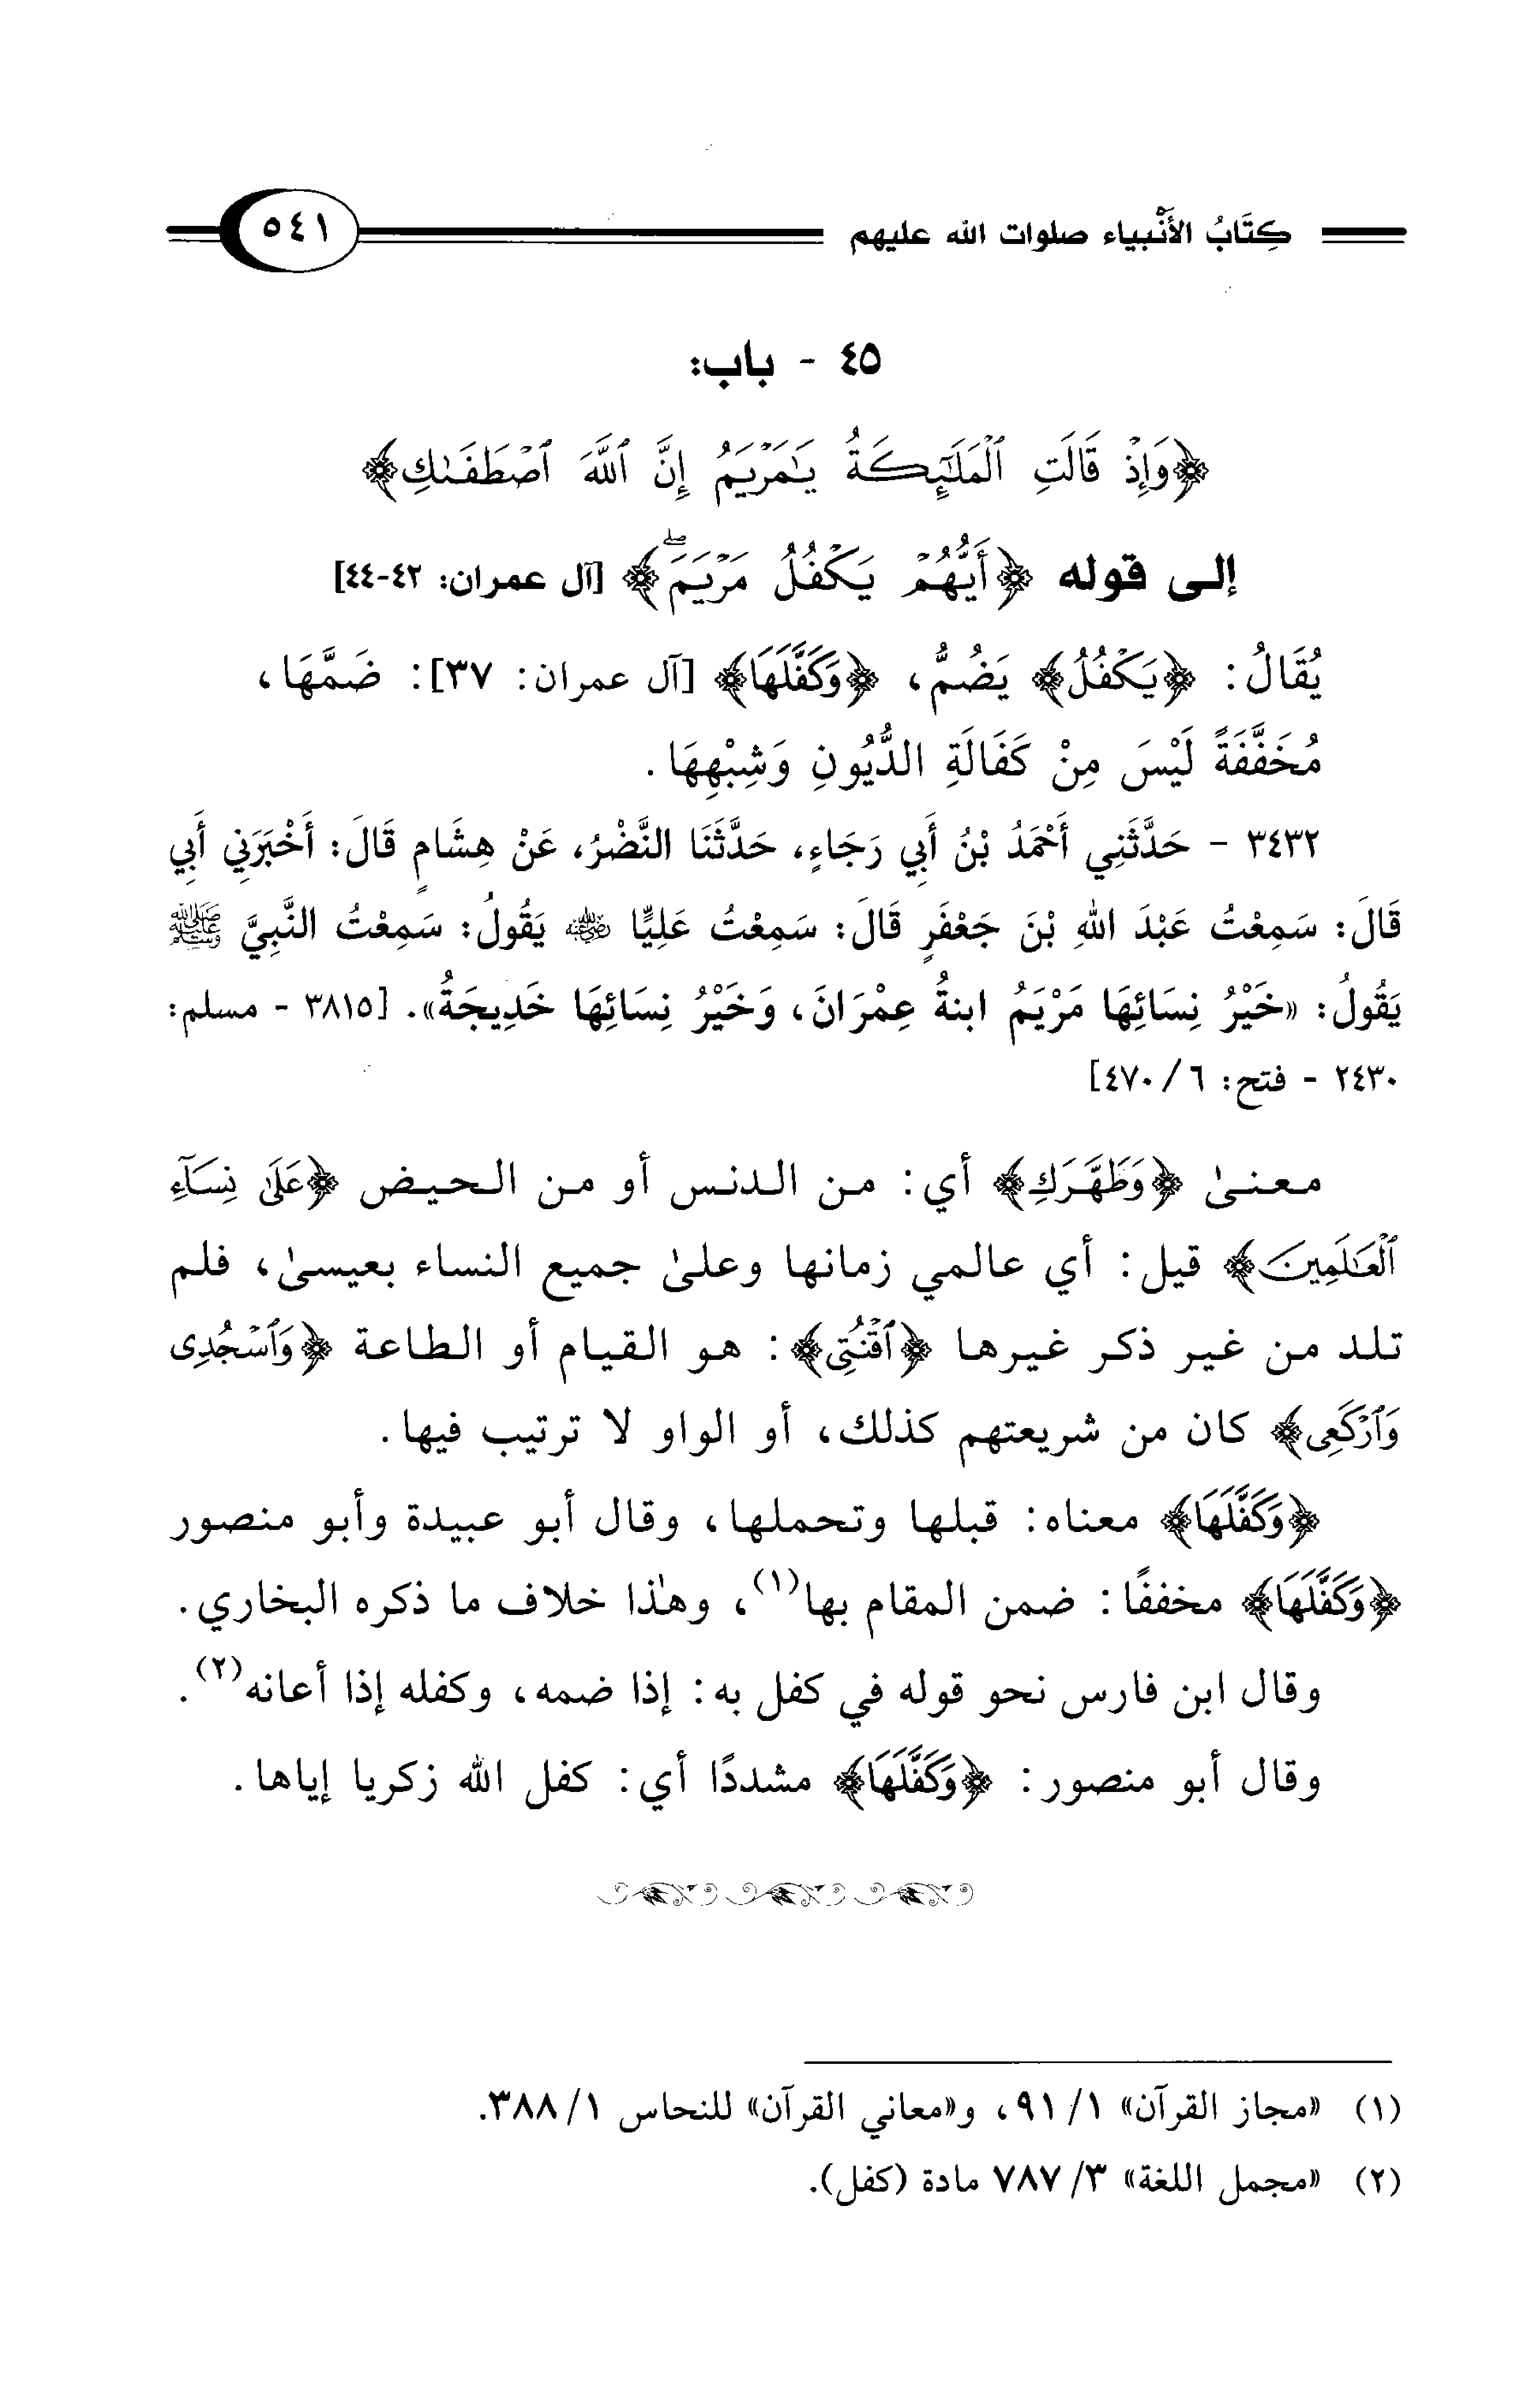 كِتَابُ الأَنْبياء صلوات الله عليهم
٥٤١
٤٥ - باب:
﴿وَإِذْ قَالَتِ ٱلْمَلَٰٓئِكَةُ يَٰمَرْيَمُ إِنَّ ٱللَّهَ ٱصْطَفَىٰكِ﴾
إلى قوله ﴿أَيُّهُمْ يَكْفُلُ مَرْيَمَۖ﴾ [آل عمران: ٤٢-٤٤]
يُقَالُ: ﴿يَكْفُلُ﴾ يَضُمُّ، ﴿وَكَفَّلَهَا﴾ [آل عمران: ٣٧]: ضَمَّهَا،
مُخَفَّفَةً لَيْسَ مِنْ كَفَالَةِ الدُّيُونِ وَشِبْهِهَا.
٣٤٣٢ - حَدَّثَنِي أَحْمَدُ بْنُ أَبِي رَجَاءٍ، حَدَّثَنَا النَّضْرُ، عَنْ هِشَامٍ قَالَ: أَخْبَرَنِي أَبِي
قَالَ: سَمِعْتُ عَبْدَ اللهِ بْنَ جَعْفَرٍ قَالَ: سَمِعْتُ عَلِيًّا رضي الله عنه يَقُولُ: سَمِعْتُ النَّبِيَّ ﷺ
يَقُولُ: «خَيْرُ نِسَائِهَا مَرْيَمُ ابنةُ عِمْرَانَ، وَخَيْرُ نِسَائِهَا خَدِيجَةُ». [٣٨١٥ - مسلم:
٢٤٣٠ - فتح: ٦/ ٤٧٠]
معنىٰ ﴿وَطَهَّرَكِ﴾ أي: من الدنس أو من الحيض ﴿عَلَىٰ نِسَآءِ
ٱلْعَٰلَمِينَ﴾ قيل: أي عالمي زمانها وعلىٰ جميع النساء بعيسىٰ، فلم
تلد من غير ذكر غيرها ﴿ٱقْنُتِى﴾: هو القيام أو الطاعة ﴿وَٱسْجُدِى
وَٱرْكَعِى﴾ كان من شريعتهم كذلك، أو الواو لا ترتيب فيها.
﴿وَكَفَّلَهَا﴾ معناه: قبلها وتحملها، وقال أبو عبيدة وأبو منصور
﴿وَكَفَّلَهَا﴾ مخففًا: ضمن المقام بها(١)، وهٰذا خلاف ما ذكره البخاري.
وقال ابن فارس نحو قوله في كفل به: إذا ضمه، وكفله إذا أعانه(٢).
وقال أبو منصور: ﴿وَكَفَّلَهَا﴾ مشددًا أي: كفل الله زكريا إياها.
(١) «مجاز القرآن» ١/ ٩١، و«معاني القرآن» للنحاس ١/ ٣٨٨.
(٢) «مجمل اللغة» ٣/ ٧٨٧ مادة (كفل).